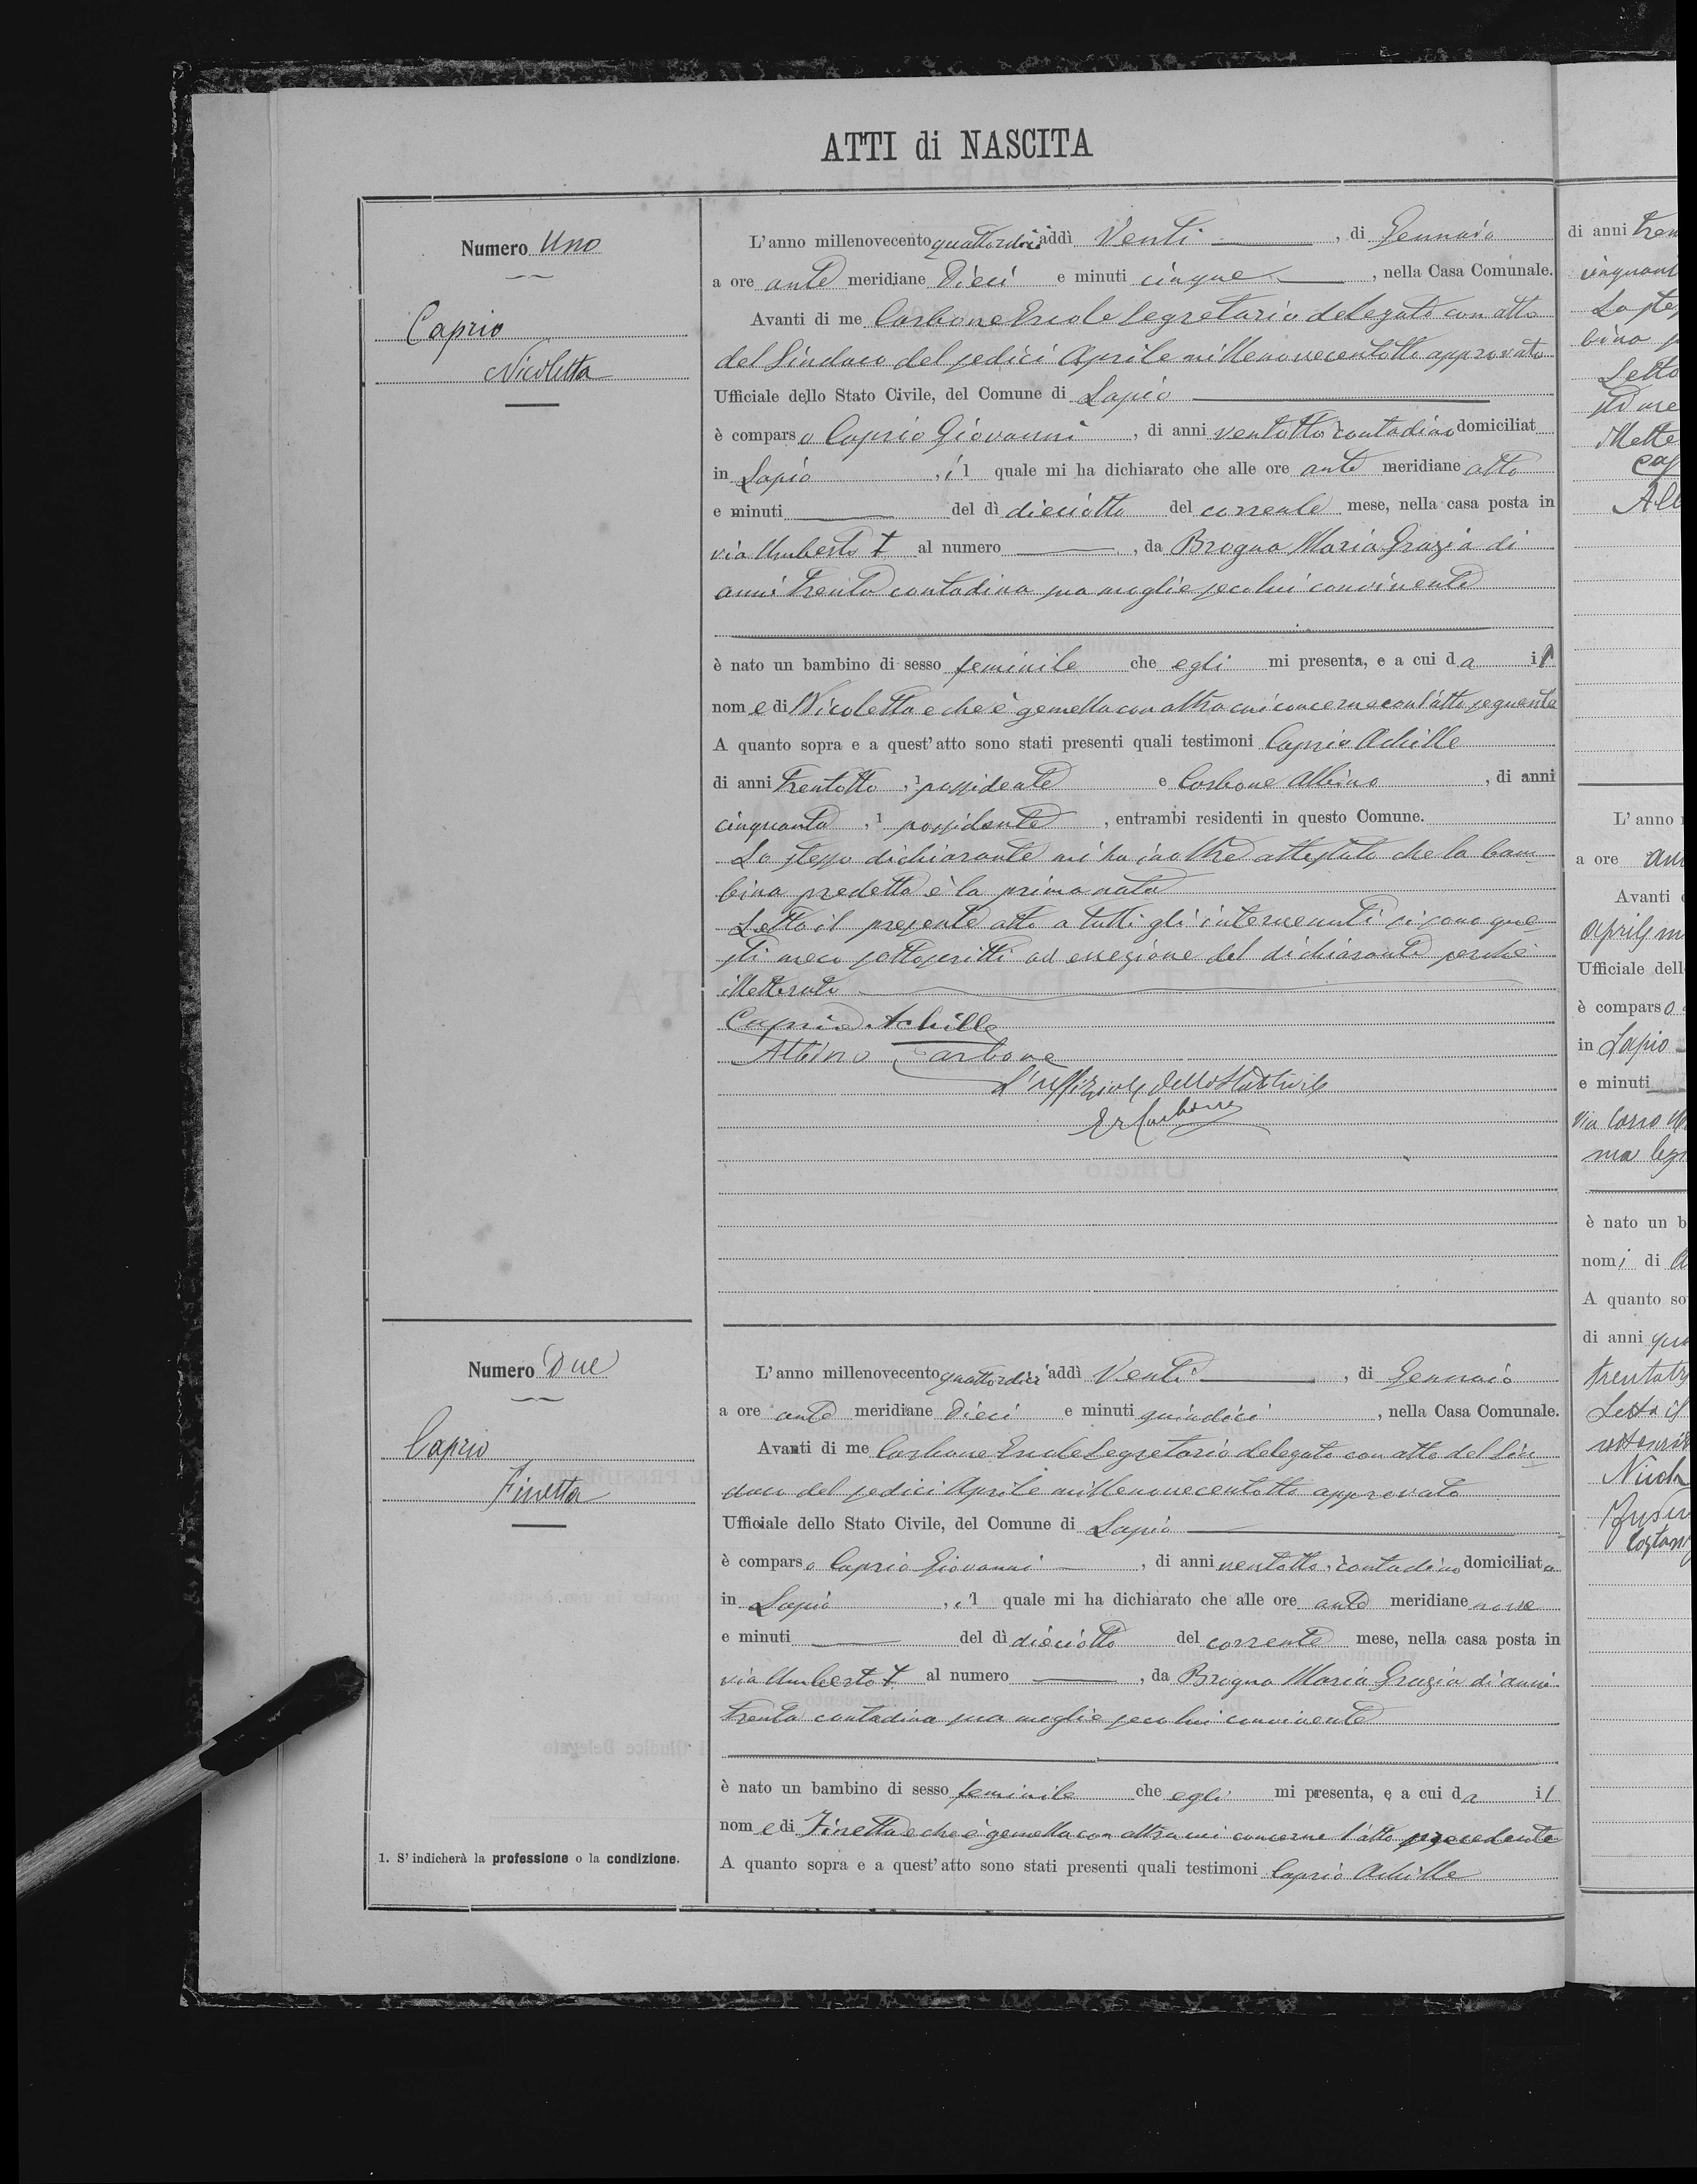 ATTI di NASCITA
Numero Uno
Caprio
Nicoletta
L'anno millenovecentoquattordici addì Venti, di Gennaio
a ore ante meridiane Dieci e minuti cinque, nella Casa Comunale.
Avanti di me Carbone Ercole Segretario delegato con atto
del Sindaco del sedici Aprile millenovecentotto approvato
Ufficiale dello Stato Civile, del Comune di Lapio
è comparso Caprio Giovanni, di anni ventotto contadino domiciliat
in Lapio, il quale mi ha dichiarato che alle ore ante meridiane otto
e minuti del dì dieciotto del corrente mese, nella casa posta in
via Umberto I al numero, da Brogna Maria Grazia di
anni trenta contadina sua moglie seco lui convivente
è nato un bambino di sesso feminile che egli mi presenta, e a cui da il
nome di Nicoletta e che è gemella con altra cui concerne con l'atto seguente
A quanto sopra e a quest'atto sono stati presenti quali testimoni Caprio Achille
di anni trentotto, 1 possidente e Carbone Albino, di anni
cinquanta, 1 possidente, entrambi residenti in questo Comune.
Lo stesso dichiarante mi ha inoltre attestato che la bam-
bina predetta è la prima nata
Letto il presente atto a tutti gli intervenuti si sono que-
sti meco sottoscritti ad eccezione del dichiarante perchè
illetterato
Caprio Achille
Albino Carbone
L'uffiziale dello Stato Civile
Er Carbone
Numero Due
Caprio
Finetta
L'anno millenovecentoquattordici addì Venti, di Gennaio
a ore ante meridiane Dieci e minuti quindici, nella Casa Comunale.
Avanti di me Carbone Ercole Segretario delegato con atto del Sin-
daco del sedici Aprile millenovecentotto approvato
Ufficiale dello Stato Civile, del Comune di Lapio
è comparso Caprio Giovanni, di anni ventotto, contadino domiciliato
in Lapio, il quale mi ha dichiarato che alle ore ante meridiane nove
e minuti del dì dieciotto del corrente mese, nella casa posta in
via Umberto I al numero, da Brogna Maria Grazia di anni
trenta contadina sua moglie seco lui convivente
è nato un bambino di sesso feminile che egli mi presenta, e a cui da il
nome di Finetta e che è gemella con altra cui concerne l'atto precedente
A quanto sopra e a quest'atto sono stati presenti quali testimoni Caprio Achille
1. S'indicherà la professione o la condizione.
di anni
bina
Letto
L'anno
a ore
Avanti
Ufficiale dell
è comparso
in Lapio
e minuti
è nato un b
nomi di
A quanto so
di anni
Letto il